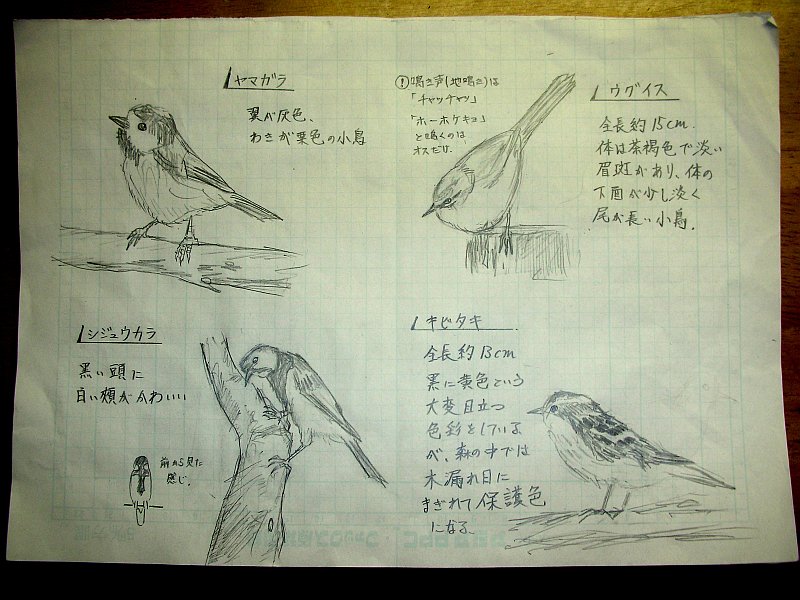 ヤマガラ
翼が灰色、
わきが栗色の小鳥
! 鳴き声(地鳴き)は
「チャッチャッ」
「ホーホケキョ」
と鳴くのは
オスだけ.
ウグイス
全長約15cm.
体は茶褐色で淡い
眉斑があり、体の
下面が少し淡く
尾が長い小鳥.
シジュウカラ
黒い頭に
白い頬がかわいい
前から見た
感じ.
キビタキ
全長約13cm
黒に黄色という
大変目立つ
色彩をしている
が、森の中では
木漏れ日に
まぎれて保護色
になる.